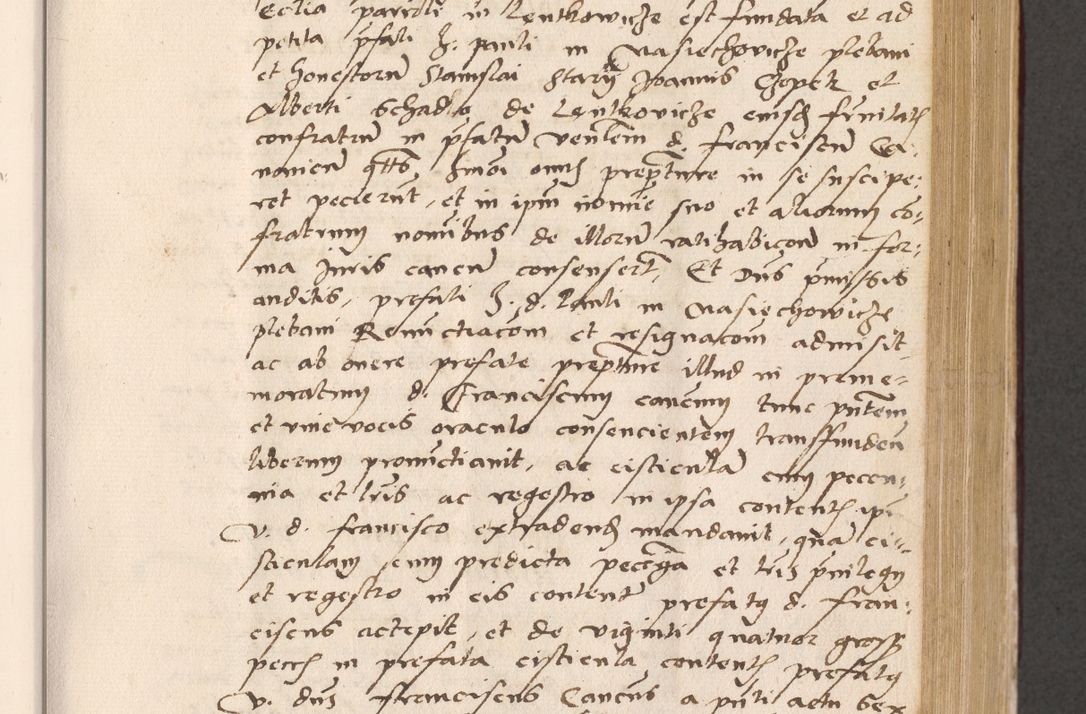 Ecclia parochi in Lentkowicze est fundata et ad
petita pfati H. pauli in Nasiechowicze plebani
et honestoru Stanislai Stary Joannis Chopek et
Alberti Schadlo de Lentkovicze eiusd frnitatis
confratru in pfatum venlem d. franciscu Ca-
nonicu qtts hmoi onus prepture in se suscipe-
ret pecierut, et in ipm nomie suo et aliorum co-
fratrum nomibus de illoru ratihabicone in for-
ma Juris canen consensert, Et Dns pmissis
auditis, prefati H. d. Pauli in Nasiechowicze
plebani Renuctiacom et resignacom admisit
ac ab onere prefate prepture illud in preme-
moratum d. Franciscum canicum tunc pntem
et vive vocis oraculo consencientem transffunden
liberum pronuctiavit, ac cisticulam cum pecun-
nia et lris ac regestro in ipsa content. ipi
V. d. francisco extradend mandavit, qua ci-
sticulam cum predicta pecunia et lris privilegy
et regestro in eis content prefatus d. Fran-
ciscus accepit, et de viginti quatuor gross
pecc in prefata cisticula content prefatus
V. dns franciscus Cancus a pnti actu sex